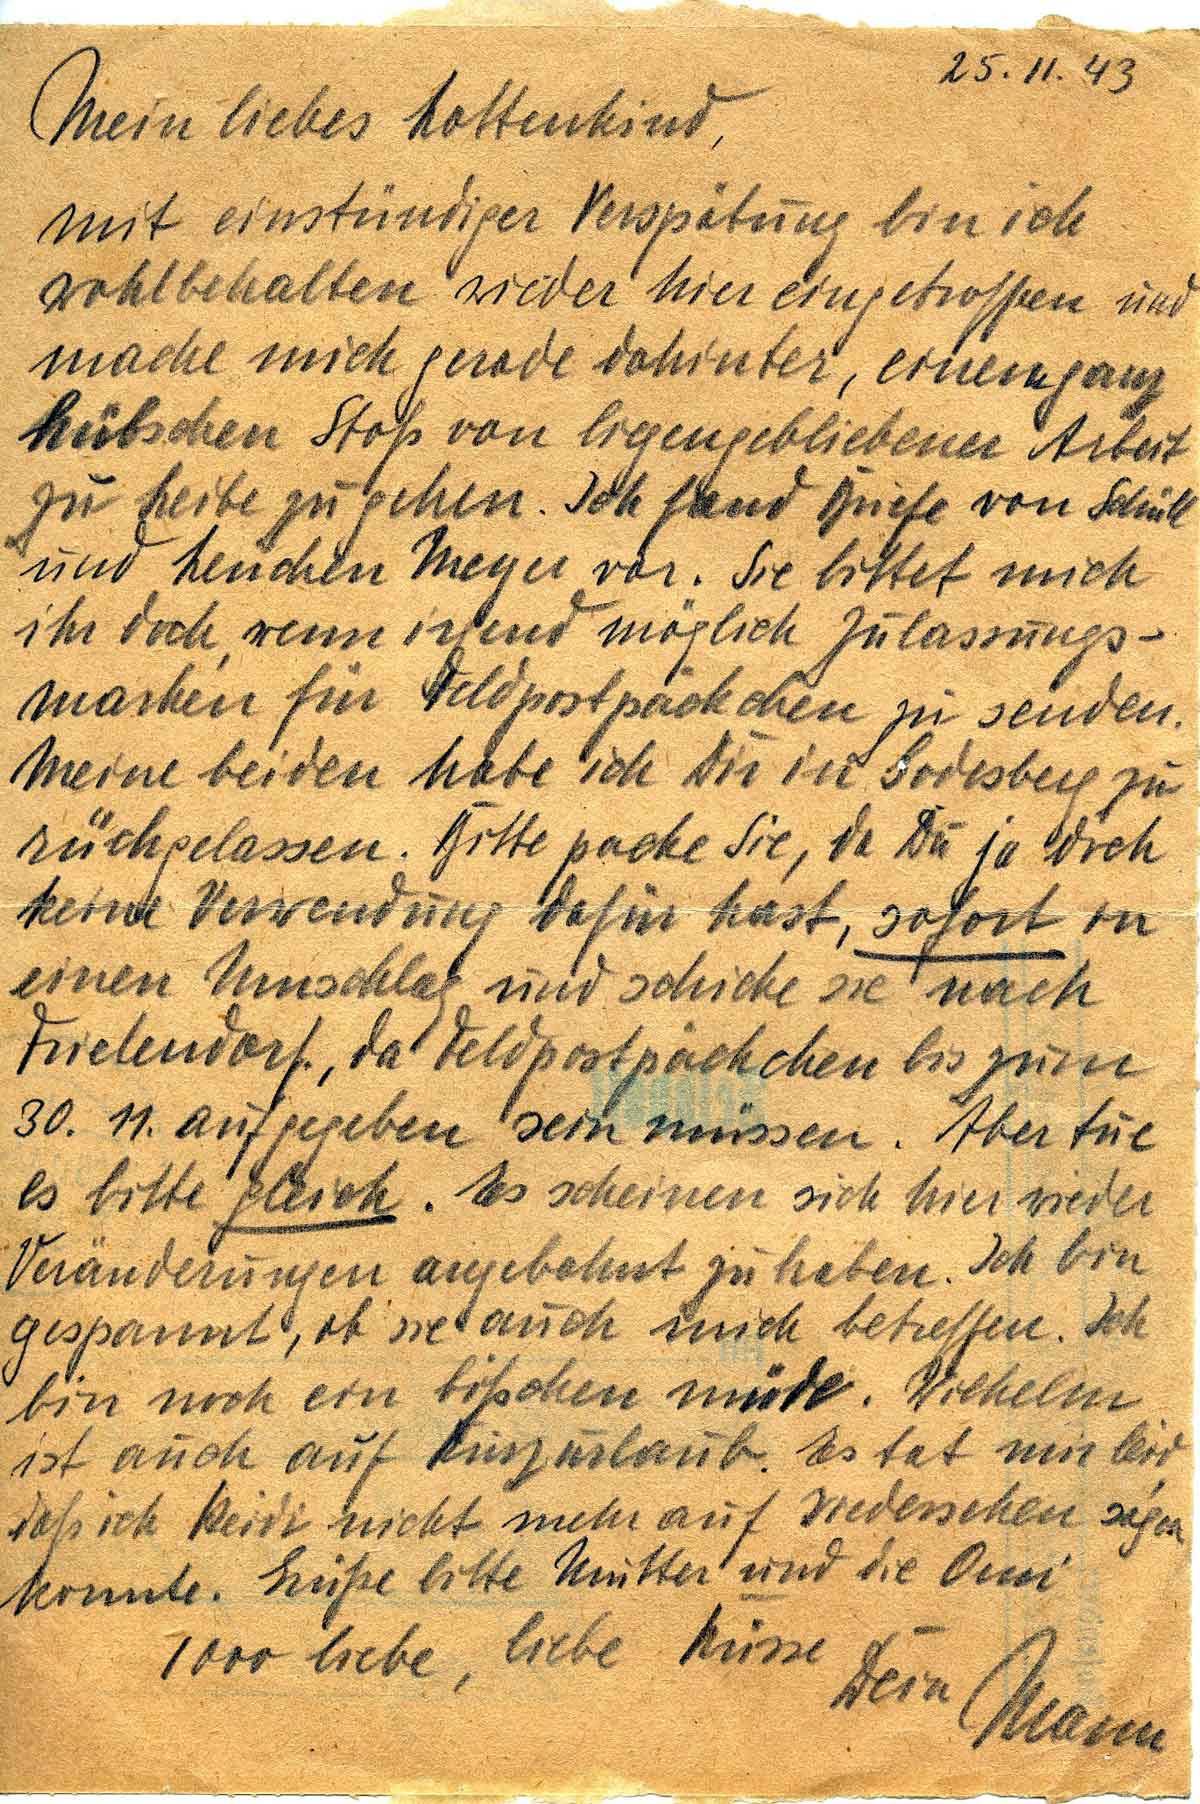 25. 11. 43
Mein liebes Lottenkind,
mit einstündiger Verspätung bin ich
wohlbehalten wieder hier eingetroffen und
mache mich gerade dahinter, einem ganz
hübschen Stoß von liegengebliebener Arbeit
zu Leibe zu gehen. Ich fand Briefe von
und Lenchen Meyer vor. Sie bittet mich
ihr doch, wenn irgend möglich Zulassungs-
marken für Feldpostpäckchen zu senden.
Meine beiden habe ich Dir in Godesberg zu
rückgelassen. Bitte packe Sie, da Du ja doch
keine Verwendung dafür hast, sofort in
einen Umschlag und schicke sie nach
Frielendorf, da Feldpostpäckchen bis zum
30. 11. aufgegeben sein müssen. Aber tue
es bitte gleich. Es scheinen sich hier wieder
Veränderungen angebahnt zu haben. Ich bin
gespannt, ob sie auch mich betreffen. Ich
bin noch ein bißchen müde. Wilhelm
ist auch auf Kurzurlaub. Es tat mir leid,
daß ich Heidi nicht mehr auf Wiedersehen sagen
konnte. Grüße bitte Mutter und die Omi
1000 liebe, liebe Küsse
Dein Mann